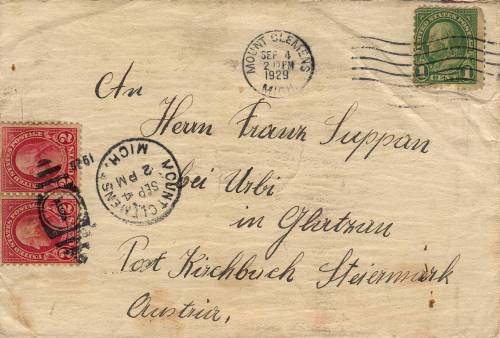 MOUNT CLEMENS
SEP 4
2 PM
1929
MICH.
UNITED STATES POSTAGE
1 CENT 1
An
Herrn Franz Suppan
bei Urbi
in Glatzau
Post Kirchbach Steiermark
Austria,
MOUNT CLEMENS
MICH.
SEP 4
2 PM
1929
UNITED STATES POSTAGE
2
UNITED STATES POSTAGE
2